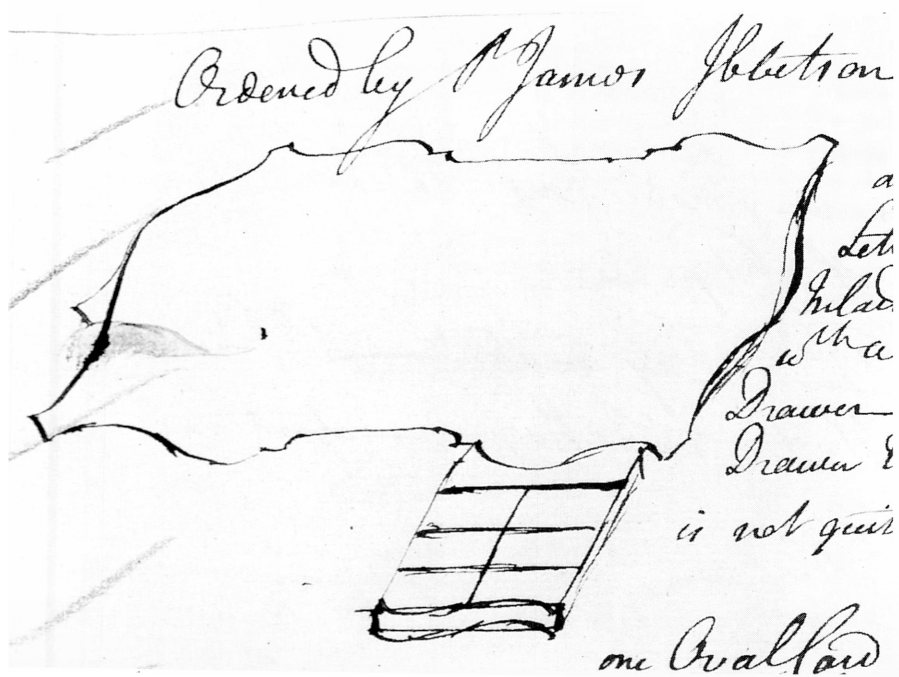 Ordered by Sr James Ibbetson
a
Let
Inlad
wth a
Drawer
Drawer
is not quit
one Ovall Card